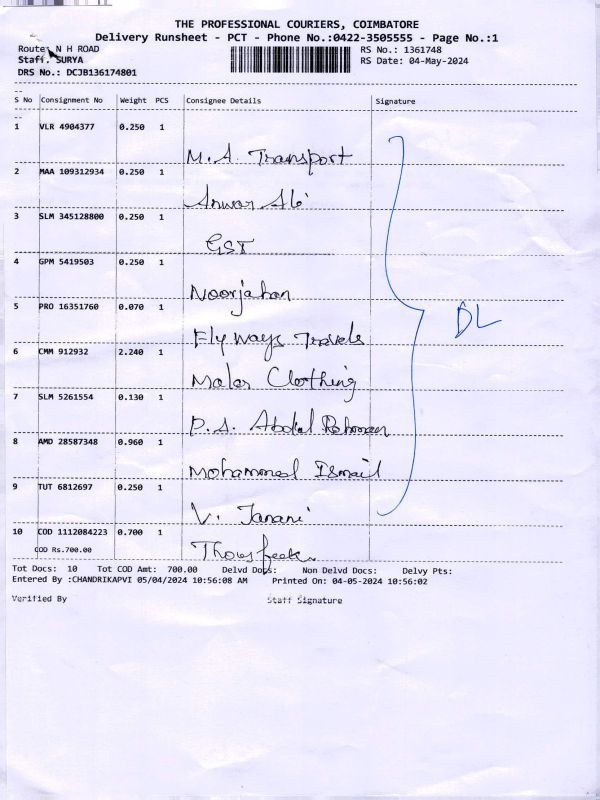 THE PROFESSIONAL COURIERS, COIMBATORE
Delivery Runsheet - PCT - Phone No.:0422-3505555 - Page No.:1
Route: N H ROAD RS No.: 1361748
Staff. SURYA RS Date: 04-May-2024
DRS No.: DCJB136174801
S No Consignment No Weight PCS Consignee Details Signature
1 VLR 4904377 0.250 1
M.A. Transport
2 MAA 109312934 0.250 1
Anwar Ali
3 SLM 345128800 0.250 1
GST
4 GPM 5419503 0.250 1
Noorjahan
5 PRO 16351760 0.070 1
Fly ways Travels
DL
6 CMM 912932 2.240 1
Malar Clothing
7 SLM 5261554 0.130 1
P.S. Abdul Rahman
8 AMD 28587348 0.960 1
Mohammed Ismail
9 TUT 6812697 0.250 1
V. Janani
10 COD 1112084223 0.700 1
COD Rs.700.00
Thowfeek
Tot Docs: 10 Tot COD Amt: 700.00 Delvd Docs: Non Delvd Docs: Delvy Pts:
Entered By :CHANDRIKAPVI 05/04/2024 10:56:08 AM Printed On: 04-05-2024 10:56:02
Verified By Staff Signature